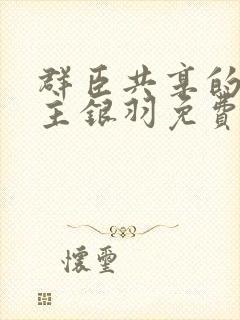 群臣共享的
主银羽免費
懷璽